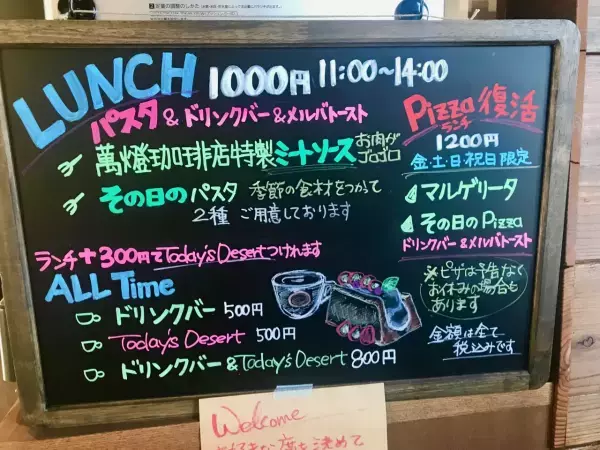 LUNCH 1000円 11:00〜14:00
パスタ&ドリンクバー&メルバトースト
萬燈珈琲店特製ミートソース お肉がゴロゴロ
その日のパスタ 季節の食材をつかって
2種 ご用意しております
ランチ+300円でToday's Desertつけれます
Pizza ランチ 復活
1200円
金・土・日・祝日限定
マルゲリータ
その日のPizza
ドリンクバー&メルバトースト
※ピザは予告なく
お休みの場合も
あります
金額は全て
税込みです
ALL Time
ドリンクバー 500円
Today's Desert 500円
ドリンクバー&Today's Desert 800円
Welcome
お好きな席を決めて